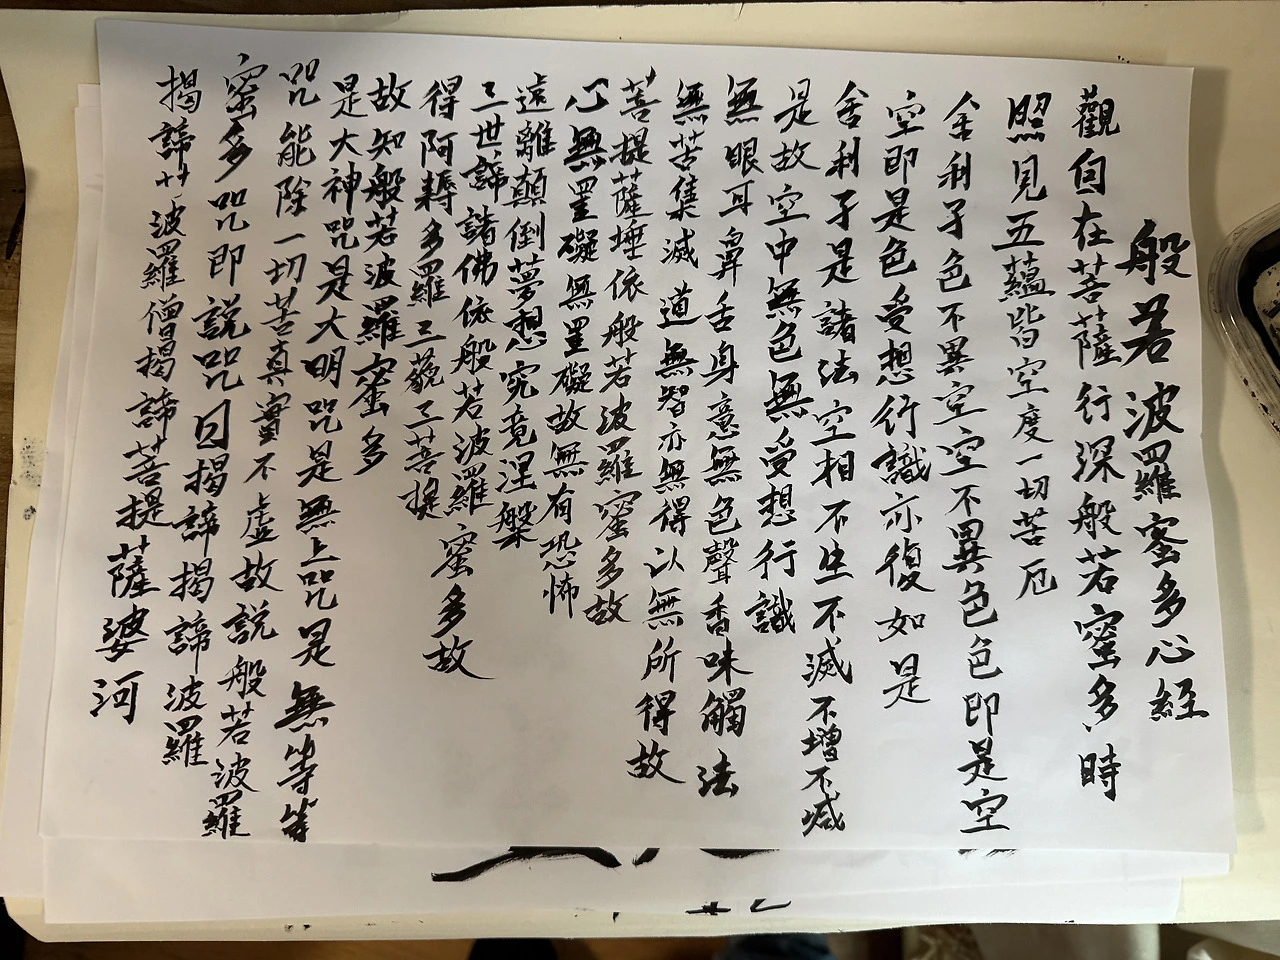 般若波羅蜜多心経
觀自在菩薩行深般若蜜多時
照見五蘊皆空度一切苦厄
舍利子色不異空空不異色色即是空
空即是色受想行識亦復如是
舍利子是諸法空相不生不滅不增不減
是故空中無色無受想行識
無眼耳鼻舌身意無色聲香味觸法
無苦集滅道無智亦無得以無所得故
菩提薩埵依般若波羅蜜多故
心無罣礙無罣礙故無有恐怖
遠離顛倒夢想究竟涅槃
三世諦諸佛依般若波羅蜜多故
得阿耨多羅三藐三菩提
故知般若波羅蜜多
是大神咒是大明咒是無上咒是無等等
咒能除一切苦真實不虛故説般若波羅
蜜多咒即説咒曰揭諦揭諦波羅
揭諦艹波羅僧揭諦菩提薩婆河